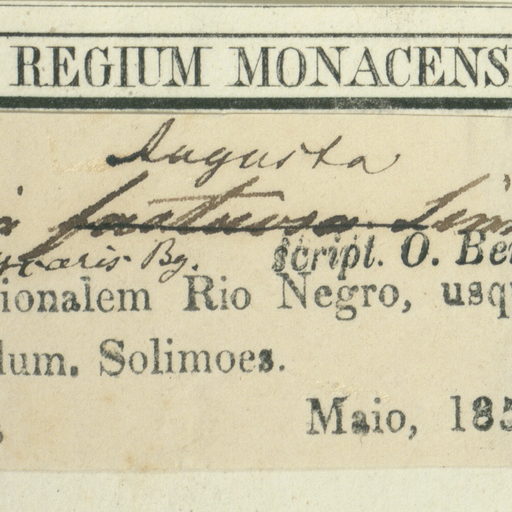 REGIUM MONACENS
Augusta
fastuosa
aris Bg. script. O. Be
ionalem Rio Negro, usq
lum. Solimoes.
Maio, 185